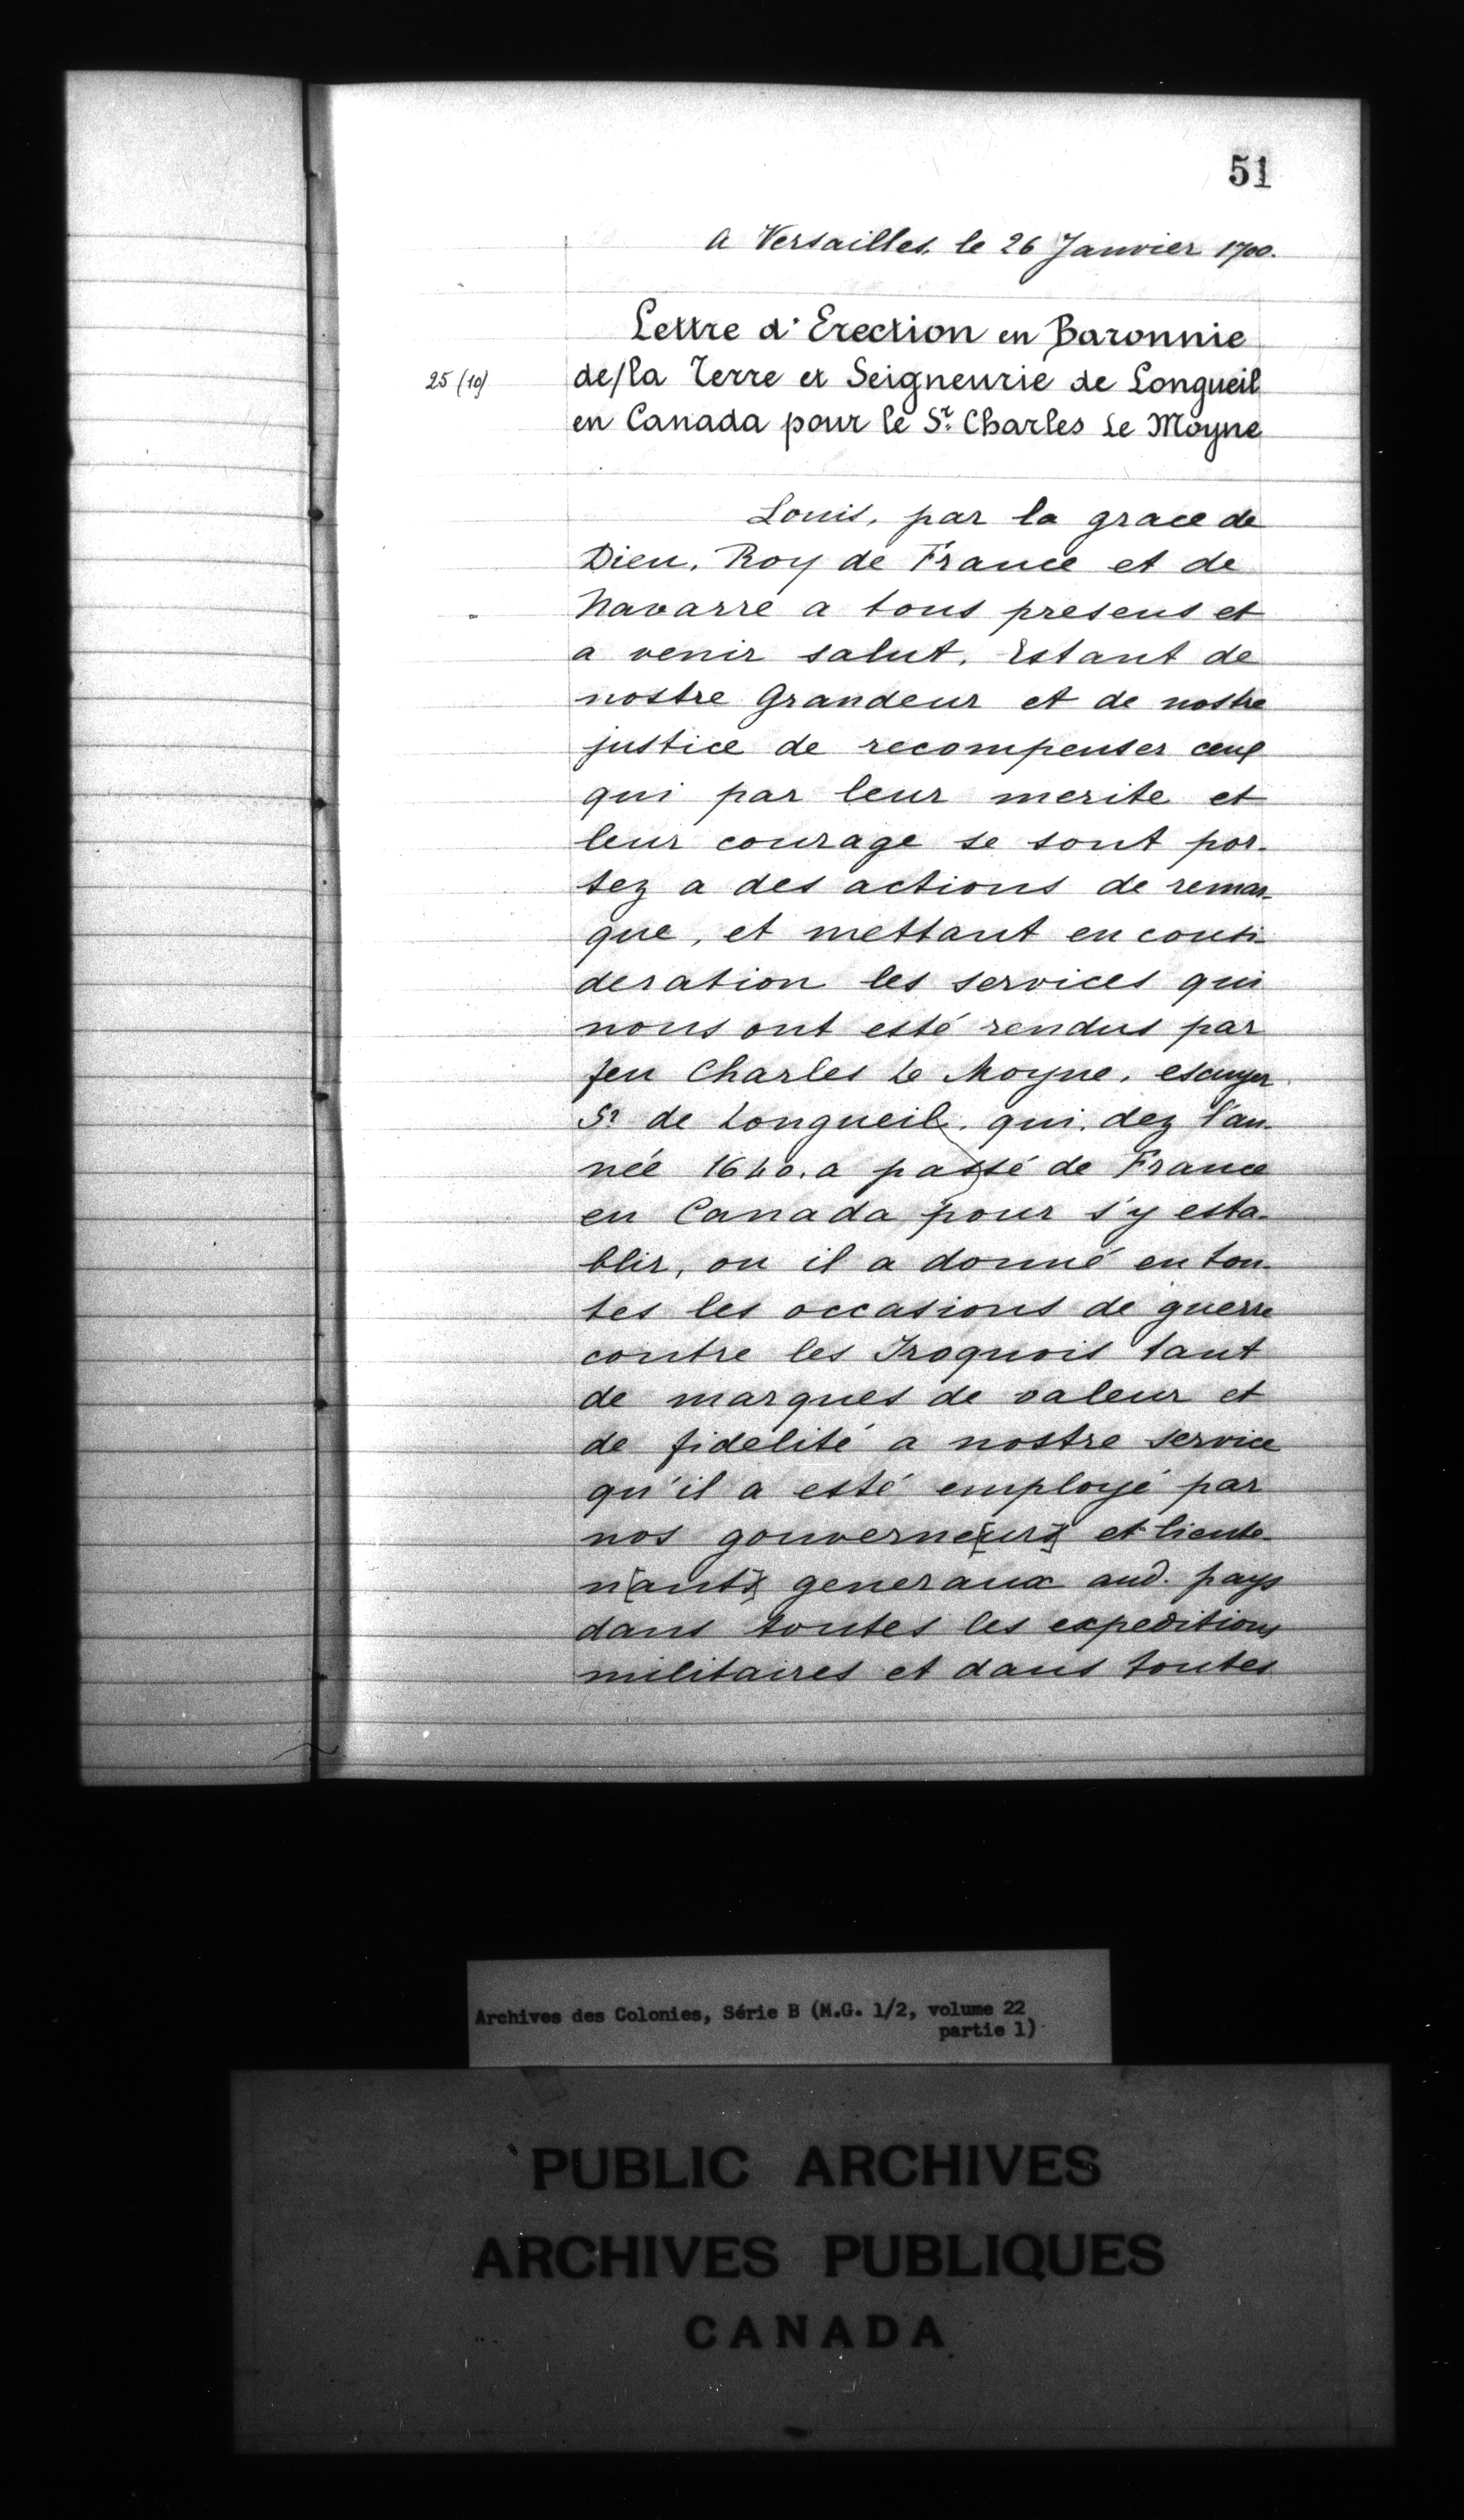 51
A Versailles, le 26 Janvier 1700.
Lettre d'Erection en Baronnie
25 (10) de/la Terre et Seigneurie de Longueil
en Canada pour le Sr. Charles Le Moyne
Louis, par la grace de
Dieu, Roy de France et de
Navarre a tous presens et
a venir salut. Estant de
nostre Grandeur et de nostre
justice de recompenser ceux
qui par leur merite et
leur courage se sont por-
tez a des actions de remar-
que, et mettant en consi-
deration les services qui
nous ont esté rendus par
feu Charles Le Moyne, escuyer
Sr de Longueil, qui, dez l'an-
née 1640, a passé de France
en Canada pour s'y esta-
blir, ou il a donné en tou-
tes les occasions de guerre
contre les Iroquois tant
de marques de valeur et
de fidelité a nostre service
qu'il a esté employé par
nos gouverne[urs] et lieute-
n[ants] generaux aud. pays
dans toutes les expeditions
militaires et dans toutes
Archives des Colonies, Série B (M.G. 1/2, volume 22
partie 1)
PUBLIC ARCHIVES
ARCHIVES PUBLIQUES
CANADA